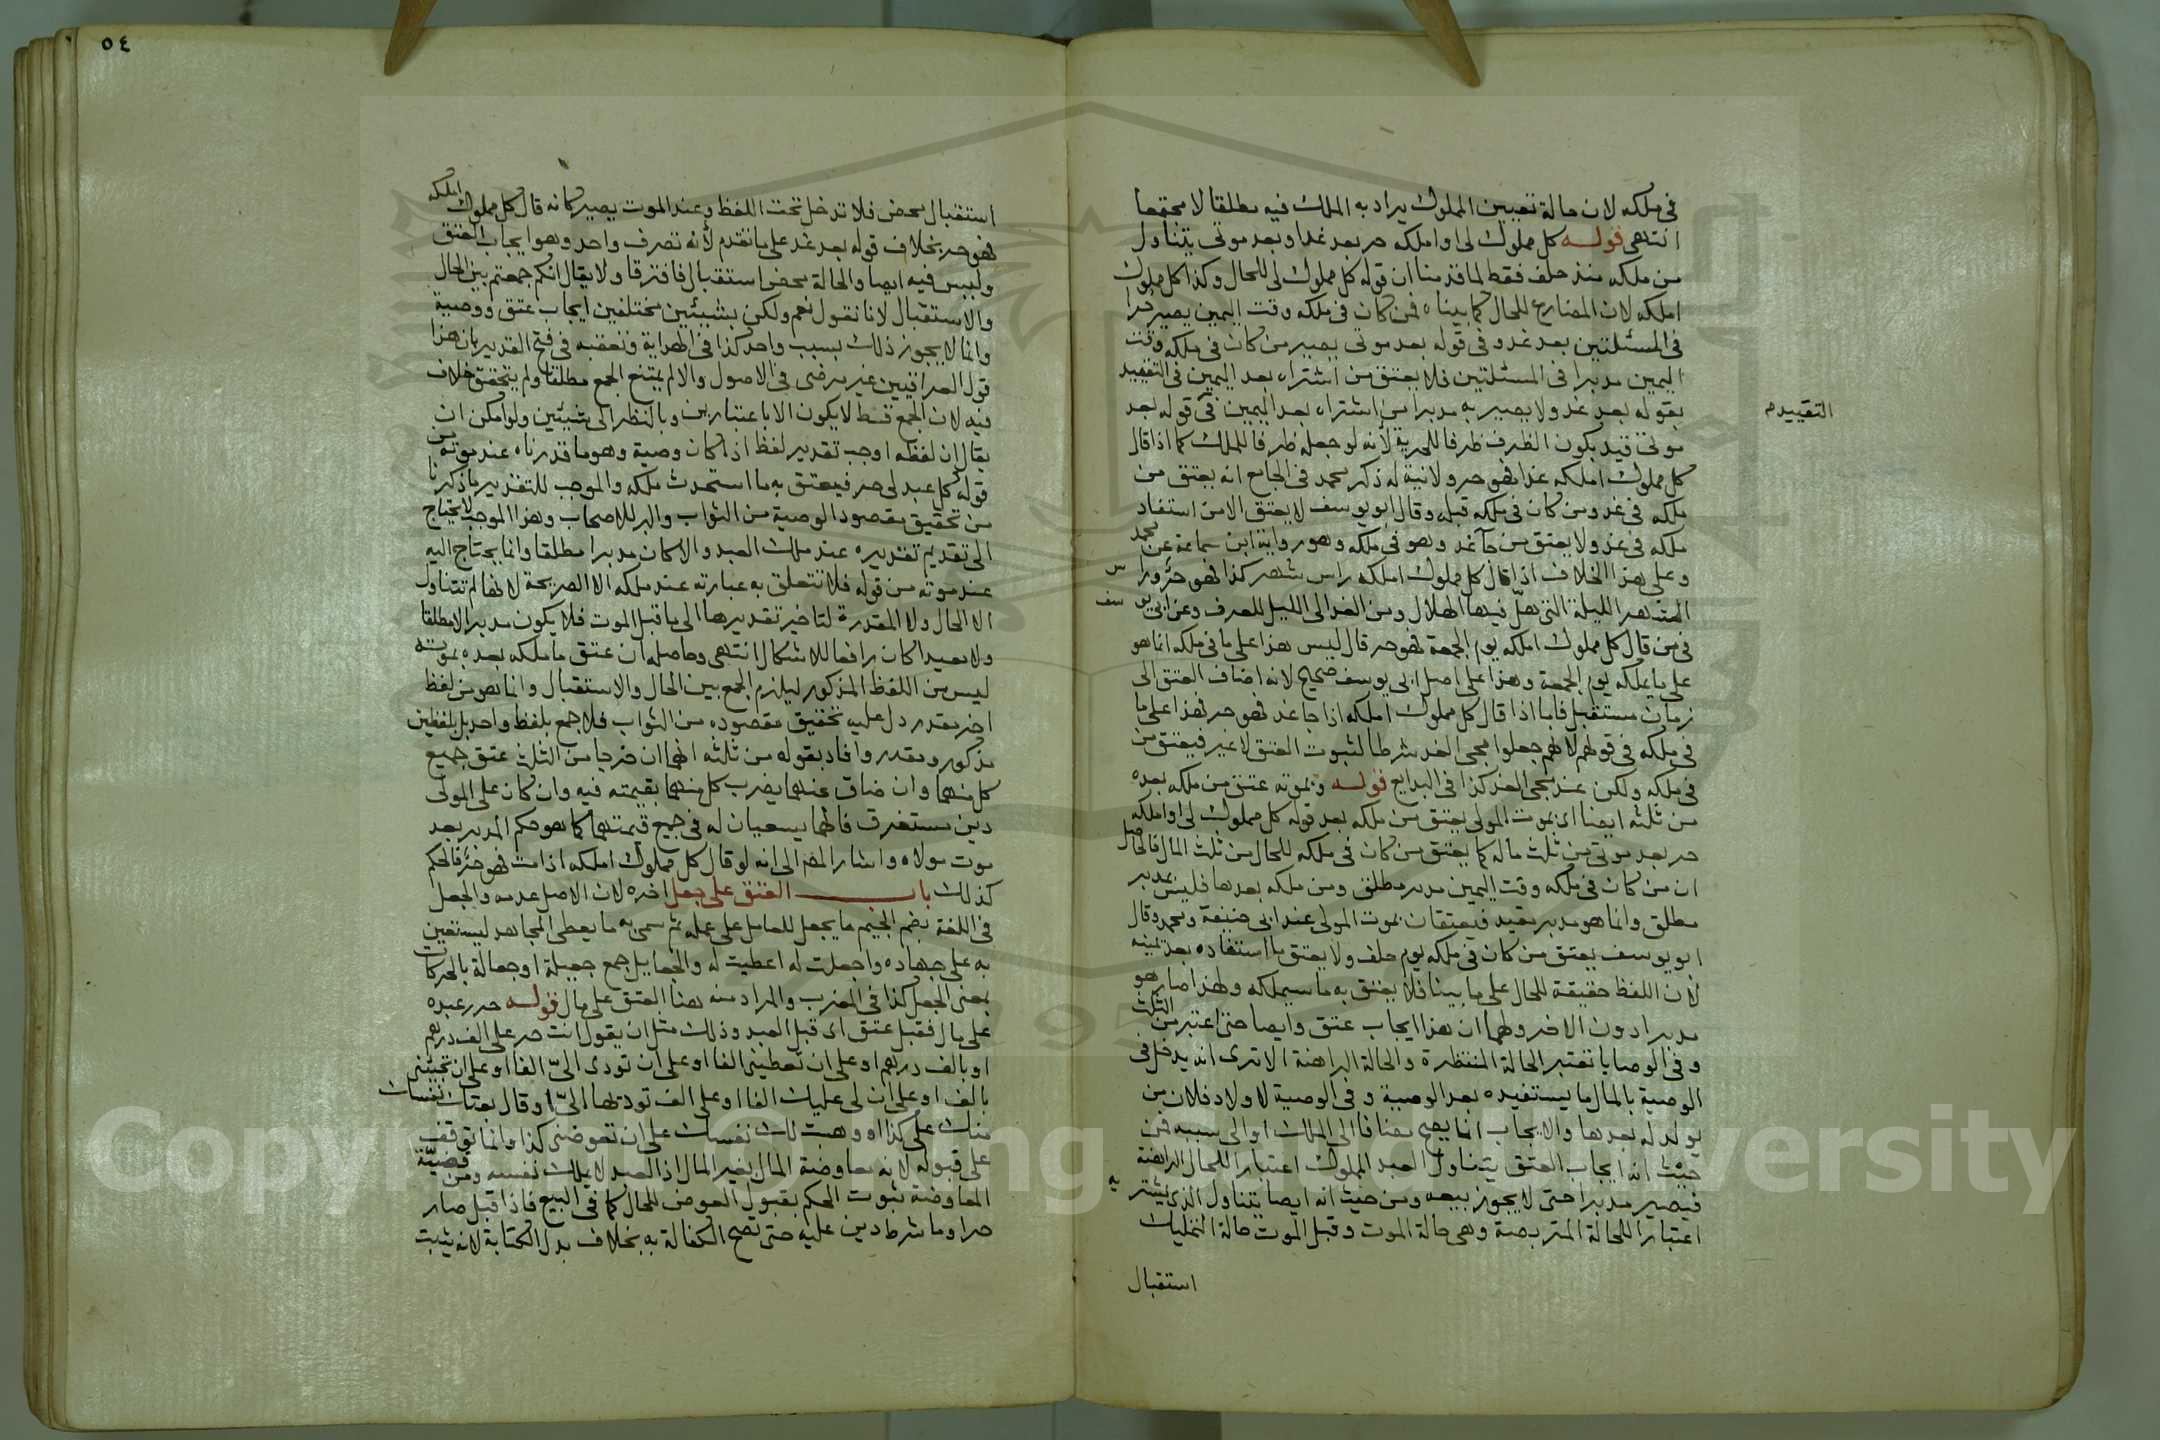 في ملكه لان حالة تعيين المملوك يراد به الملك فيه مطلقا لا مجتمعا
انتهى قوله كل مملوك لى او املكه حر بعد غد او بعد موتى يتناول
من ملكه منذ حلف فقط لما قدمنا ان قوله كل مملوك لى للحال وكذا كل مملوك
املكه لان المضارع للحال كما بيناه فمن كان في ملكه وقت اليمين يصير حرا
في المسئلتين بعد غد وفي قوله بعد موتى يصير من كان في ملكه وقت
اليمين مدبرا فى المسئلتين فلا يعتق من اشتراه بعد اليمين في التقييد
بقوله بعد غد ولا يصير به مدبرا من اشتراه بعد اليمين في قوله بعد
التقييدم
موتى قيد بكون الظرف ظرفا للحرية لأنه لو جعله ظرفا للملك كما اذا قال
كل مملوك املكه غدا فهو حر ولا نية له ذكر محمد في الجامع انه يعتق من
ملكه في غد ومن كان في ملكه قبله وقال ابو يوسف لا يعتق الا من استفاد
ملكه في غد ولا يعتق من جآ غد وهو في ملكه وهو رواية ابن سماعة عن محمد
وعلى هذا الخلاف اذا قال كل مملوك املكه راس شهر كذا فهو حر وراس
الشهر الليلة التى يهلّ فيها الهلال ومن الغد الى الليل للعرف وعن ابي يوسف
في من قال كل مملوك املكه يوم الجمعة فهو حر قال ليس هذا على ما في ملكه انما هو
على ما يملكه يوم الجمعة وهذا على اصل ابى يوسف صحيح لانه اضاف العتق الى
زمان مستقبل فاما اذا قال كل مملوك املكه اذا جا غد فهو حر فهذا على ما
في ملكه في قولهم لانهم جعلوا مجى الغد شرطا لثبوت العتق لا غير فيعتق من
في ملكه ولكن عند مجى الغد كذا في البدايع قوله وبموته عتق من ملكه بعده
من ثلثه ايضا اى بموت المولى يعتق من ملكه بعد قوله كل مملوك لى او املكه
حر بعد موتى من ثلث ماله كما يعتق من كان في ملكه للحال من ثلث المال فالحاصل
ان من كان في ملكه وقت اليمين مدبر مطلق ومن ملكه بعدها فليس بمدبر
مطلق وانما هو مدبر مقيد فيعتقان بموت المولى عند ابى حنيفة ومحمد وقال
ابو يوسف يعتق من كان فى ملكه يوم حلف ولا يعتق ما استفاده بعد يمينه
لأن اللفظ حقيقة للحال على ما بينا فلا يعتق به ما سيملكه ولهذا صار هو
مدبرا دون الاخر ولهما ان هذا ايجاب عتق وايصا حتى اعتبر من الثلث
وفى الوصايا تعتبر الحالة المنتظرة والحالة الراهنة الا ترى انه يدخل فى
الوصية بالمال ما يستفيده بعد الوصية وفى الوصية لاولاد فلان من
يولد له بعدها والايجاب انما يصح مضافا الى الملك او الى سببه فمن
حيث انه ايجاب العتق يتناول العبد المملوك اعتبارا للحال الراهنة
فيصير مدبرا حتى لا يجوز بيعه ومن حيث انه ايصا يتناول الذى يشتريه
اعتبارا للحالة المتربصة وهى حالة الموت وقبل الموت حالة التمليك
استقبال
٥٤
استقبال محض فلا تدخل تحت اللفظ وعند الموت يصير كانه قال كل مملوك املكه
فهو حر بخلاف قوله بعد غد على ما تقدم لأنه تصرف واحد وهو ايجاب العتق
وليس فيه ايصا والحالة محض استقبال فافترقا ولا يقال انكم جمعتم بين الحال
والاستقبال لانا نقول نعم ولكن بشيئين مختلفين ايجاب عتق ووصية
وانما لا يجوز ذلك بسبب واحد كذا فى الهداية وتعقبه فى فتح القدير بان هذا
قول العراقيين غير مرضى فى الاصول والا لم يمتنع الجمع مطلقا ولم يتحقق خلاف
فيه لان الجمع قط لا يكون الا باعتبارين وبالنظر الى شيئين ولو امكن ان
يقال ان لفظه اوجب تقدير لفظ اذا كان وصية وهو ما قدرناه عند موته من
قوله كل عبد لى حر فيعتق به ما استحدث ملكه والموجب للتقدير ما ذكرنا
من تحقيق مقصود الوصية من الثواب والبر للاصحاب وهذا الموجب لا يحتاج
الى تقديم تقديره عند ملك العبد والا كان مدبرا مطلقا وانما يحتاج اليه
عند موته من قوله فلا تتعلق به عبارته عند ملكه الا الصريحة لانها لم تتناول
الا الحال ولا المقدرة لتاخير تقديرها الى ما قبل الموت فلا يكون مدبرا لا مطلقا
ولا مقيدا كان رافعا للاشكال انتهى وحاصله ان عتق ما ملكه بعده بموته
ليس من اللفظ المذكور ليلزم الجمع بين الحال والاستقبال وانما هو من لفظ
اخر مقدر دل عليه تحقيق مقصوده من الثواب فلا جمع بلفظ واحد بل بلفظين
مذكور ومقدر وافاد بقوله من ثلثه انهما ان خرجا من الثلث عتق جميع
كل منهما وان ضاق عنهما يضرب كل منهما بقيمته فيه وان كان على المولى
دين مستغرق فانهما يسعيان له فى جميع قيمتهما كما هو حكم المدبر بعد
موت مولاه واشار المص الى انه لو قال كل مملوك املكه اذا مت فهو حرّ فالحكم
كذلك باب العتق على جعل اخره لان الاصل عدمه والجعل
فى اللغة بضم الجيم ما يجعل للعامل على عمله ثم سمى به ما يعطى المجاهد ليستعين
به على جهاده واجعلت له اعطيت له والجعايل جمع جعيلة او جعالة بالحركات
بمعنى الجعل كذا فى المغرب والمراد منه هنا العتق على مال قوله حرر عبده
على مال فقبل عتق اى قبل العبد وذلك مثل ان يقول انت حر على الف درهم
او بالف درهم او على ان تعطينى الفا او على ان تودى الىّ الفا او على ان تجيئنى
بالف او على ان لى عليك الفا او على الف توديها الىّ او قال بعتك نفسك
منك على كذا او وهبت لك نفسك على ان تعوضنى كذا وانما توقف
على قبوله لانه معاوضة المال بغير المال اذ العبد لا يملك نفسه ومن قضيّة
المعاوضة ثبوت الحكم بقبول العوض للحال كما فى البيع فاذا قبل صار
حرا وما شرط دين عليه حتى تصح الكفالة به بخلاف بدل الكتابة لانه يثبت
Copyright © King Saud University